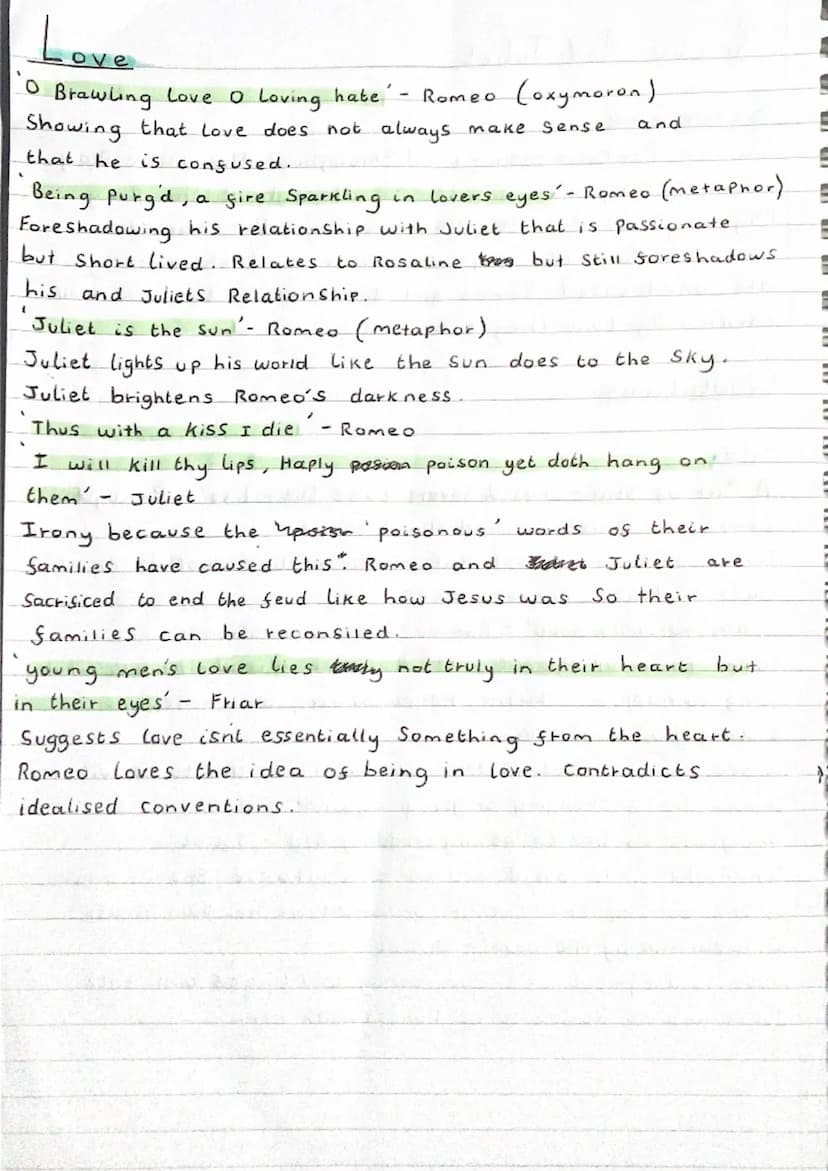 Love
'O Brawling Love O Loving hate' - Romeo (oxymoron)
Showing that Love does not always make sense and
that he is confused.
'Being purg'd, a fire Sparkling in lovers eyes' - Romeo (metaphor)
Foreshadowing his relationship with Juliet that is passionate
but short lived. Relates to Rosaline but still foreshadows
his and Juliets Relationship.
'Juliet is the sun' - Romeo (metaphor)
Juliet lights up his world like the sun does to the sky.
Juliet brightens Romeo's darkness.
'Thus with a kiss I die' - Romeo
'I will kill thy lips, Haply poison yet doth hang on
them' - Juliet
Irony because the 'poisonous' words of their
families have caused this. Romeo and Juliet are
Sacrificed to end the feud like how Jesus was so their
families can be reconsiled.
'young men's love lies not truly in their heart but
in their eyes' - Friar
Suggests love isnt essentially something from the heart.
Romeo loves the idea of being in love. Contradicts
idealised conventions.